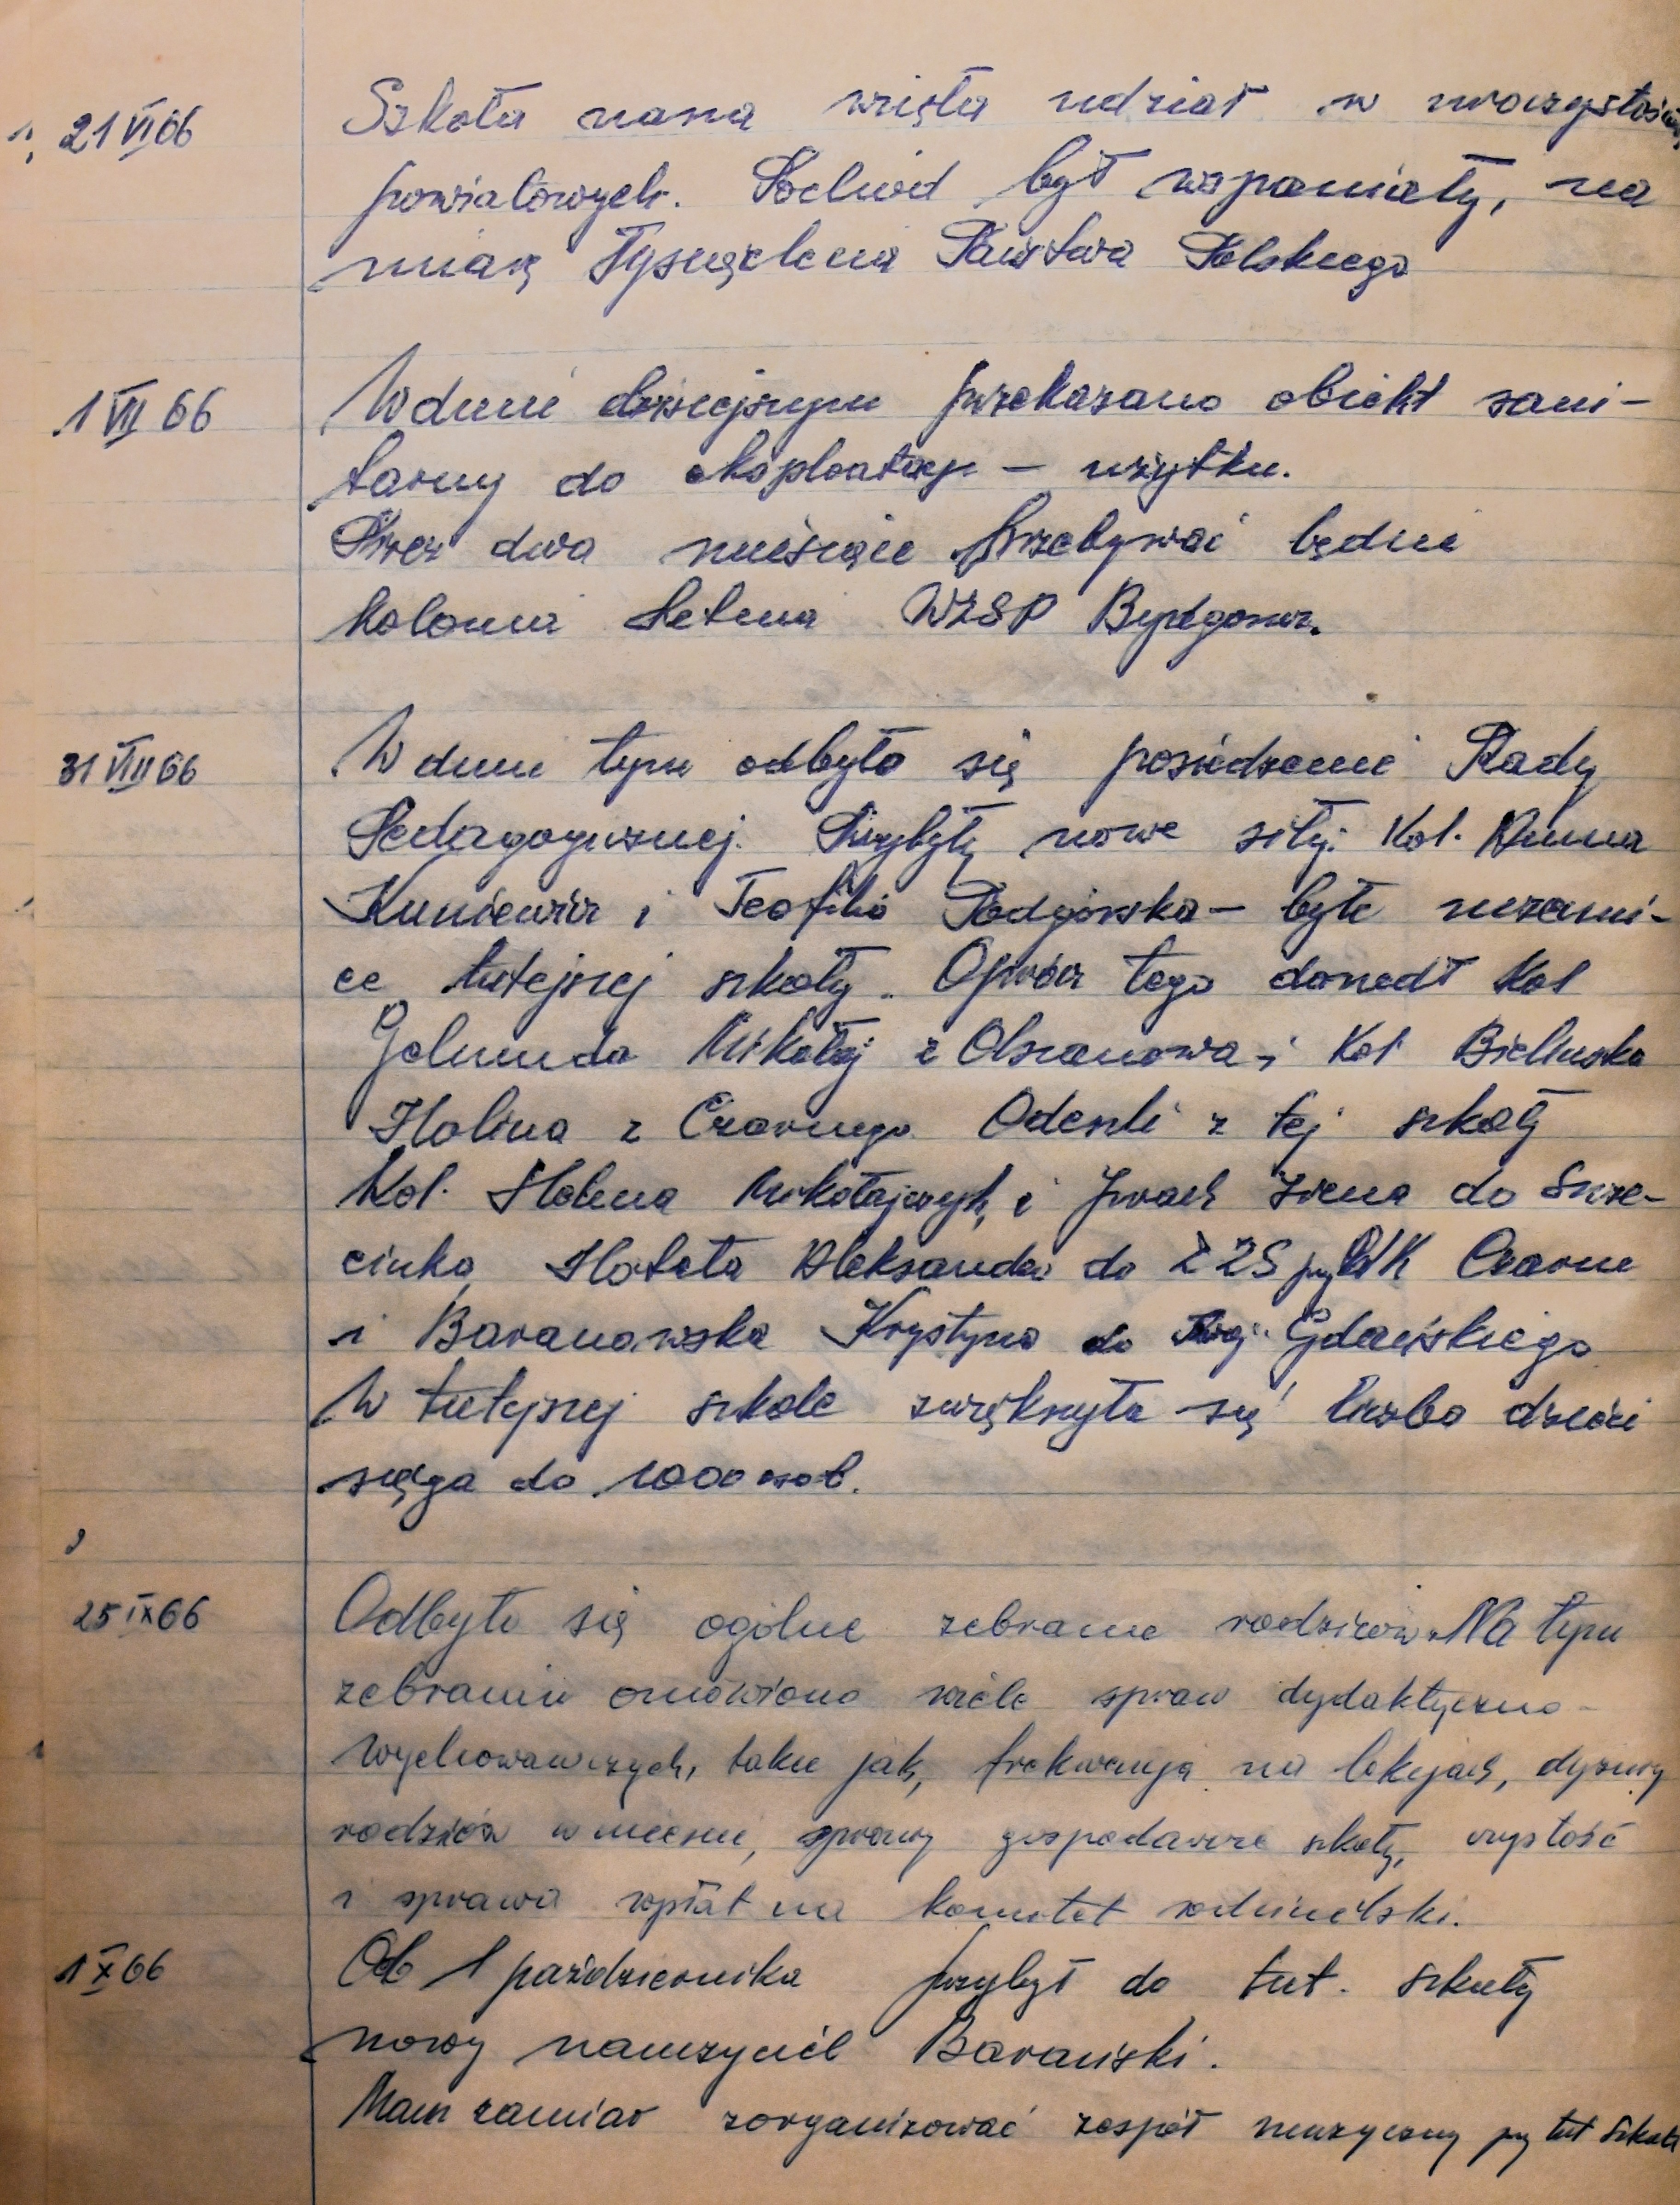 21 VI 66 Szkoła nasza wzięła udział w uroczystościach
powiatowych. Pochód był wspaniały, na
miarę Tysiąclecia Państwa Polskiego
1 VII 66 W dniu dzisiejszym przekazano obiekt sani-
tarny do eksploatacji – użytku.
Przez dwa miesiące przebywać będzie
kolonia letnia WZSP Bydgoszcz.
31 VIII 66 W dniu tym odbyło się posiedzenie Rady
Pedagogicznej. Przybyły nowe siły: Kol. Anna
Kuniewicz i Teofila Podgórska – byłe uczenni-
ce tutejszej szkoły. Oprócz tego doszedł Kol
Mikołaj z Olszanowa i Kol Bielińska
Halina z Czarnego. Odeszli z tej szkoły
Kol. Halina Mikołajczyk, i Irena do Szcze-
cinka, Hołota Aleksander do przy Czarne
i Baranowska Krystyna do woj. Gdańskiego
W tutejszej szkole zwiększyła się liczba dzieci
sięga do 1000 osób.
25 IX 66 Odbyło się ogólne zebranie rodziców. Na tym
zebraniu omówiono wiele spraw dydaktyczno-
wychowawczych, takie jak, frekwencja na lekcjach, dyżury
rodziców w mieście, sprawy gospodarcze szkoły, czystość
i sprawa wpłat na komitet rodzicielski.
1 X 66 Od 1 października przybył do tut. szkoły
nowy nauczyciel Barański.
Mam zamiar zorganizować zespół muzyczny przy tut szkole